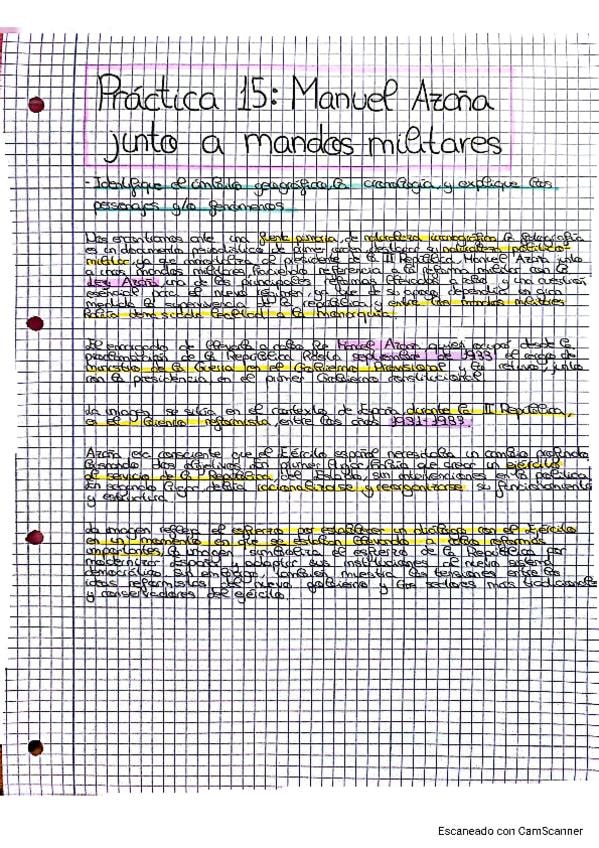 Práctica 15: Manuel Azaña
junto a mandos militares
- Identifique el ámbito geográfico, la cronología, y explique los
personajes y/o fenómenos
Nos encontramos ante una fuente primaria, de naturaleza iconográfica. La fotografía
es un documento
militar, ya que el presidente de la II República, Manuel Azaña junto
a unos mandos militares, haciendo referencia a la reforma militar con la
Ley Azaña, una de las principales reformas
la supervivencia de la república, y entre los mandos militares
a la monarquía.
El encargado de fue Manuel Azaña, quien ocupó desde la
proclamación de la República hasta septiembre de 1933 el cargo de
ministro de la Guerra en el Gobierno Provisional y lo retuvo, junto
con la presidencia en el primer Gobierno constitucional
La imagen se sitúa en el contexto de España durante la II República,
en el bienio reformista, entre los años 1931-1933.
Azaña era consciente que el Ejército español necesitaba un cambio profundo
dos objetivos. En primer lugar, había que crear un ejército
al servicio de la República, del Estado, sin intenciones en la política
En segundo lugar, debía racionalizarse y reorganizarse su funcionamiento
y estructura.
La imagen refleja el esfuerzo por establecer un diálogo con el Ejército
en un momento en que se estaban llevando a cabo reformas
importantes, la imagen simboliza el esfuerzo de la República por
modernizar España y adaptar sus instituciones al nuevo sistema
democrático. Sin embargo, también muestra las tensiones entre las
ideas reformistas del nuevo gobierno y los sectores más tradicionales
y conservadores del ejército.
Escaneado con CamScanner